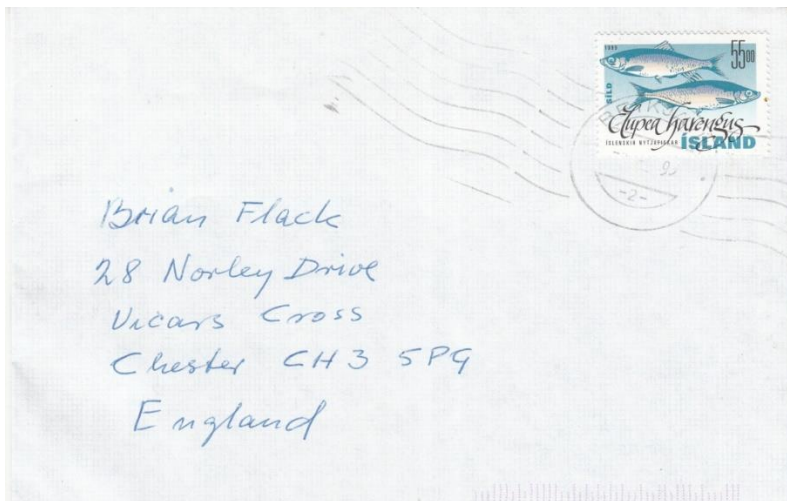 1999
55 00
SÍLD
Clupea harengus
ÍSLENSKIR NYTJAFISKAR ÍSLAND
-2-
Brian Flack
28 Norley Drive
Vicars Cross
Chester CH3 5PG
England